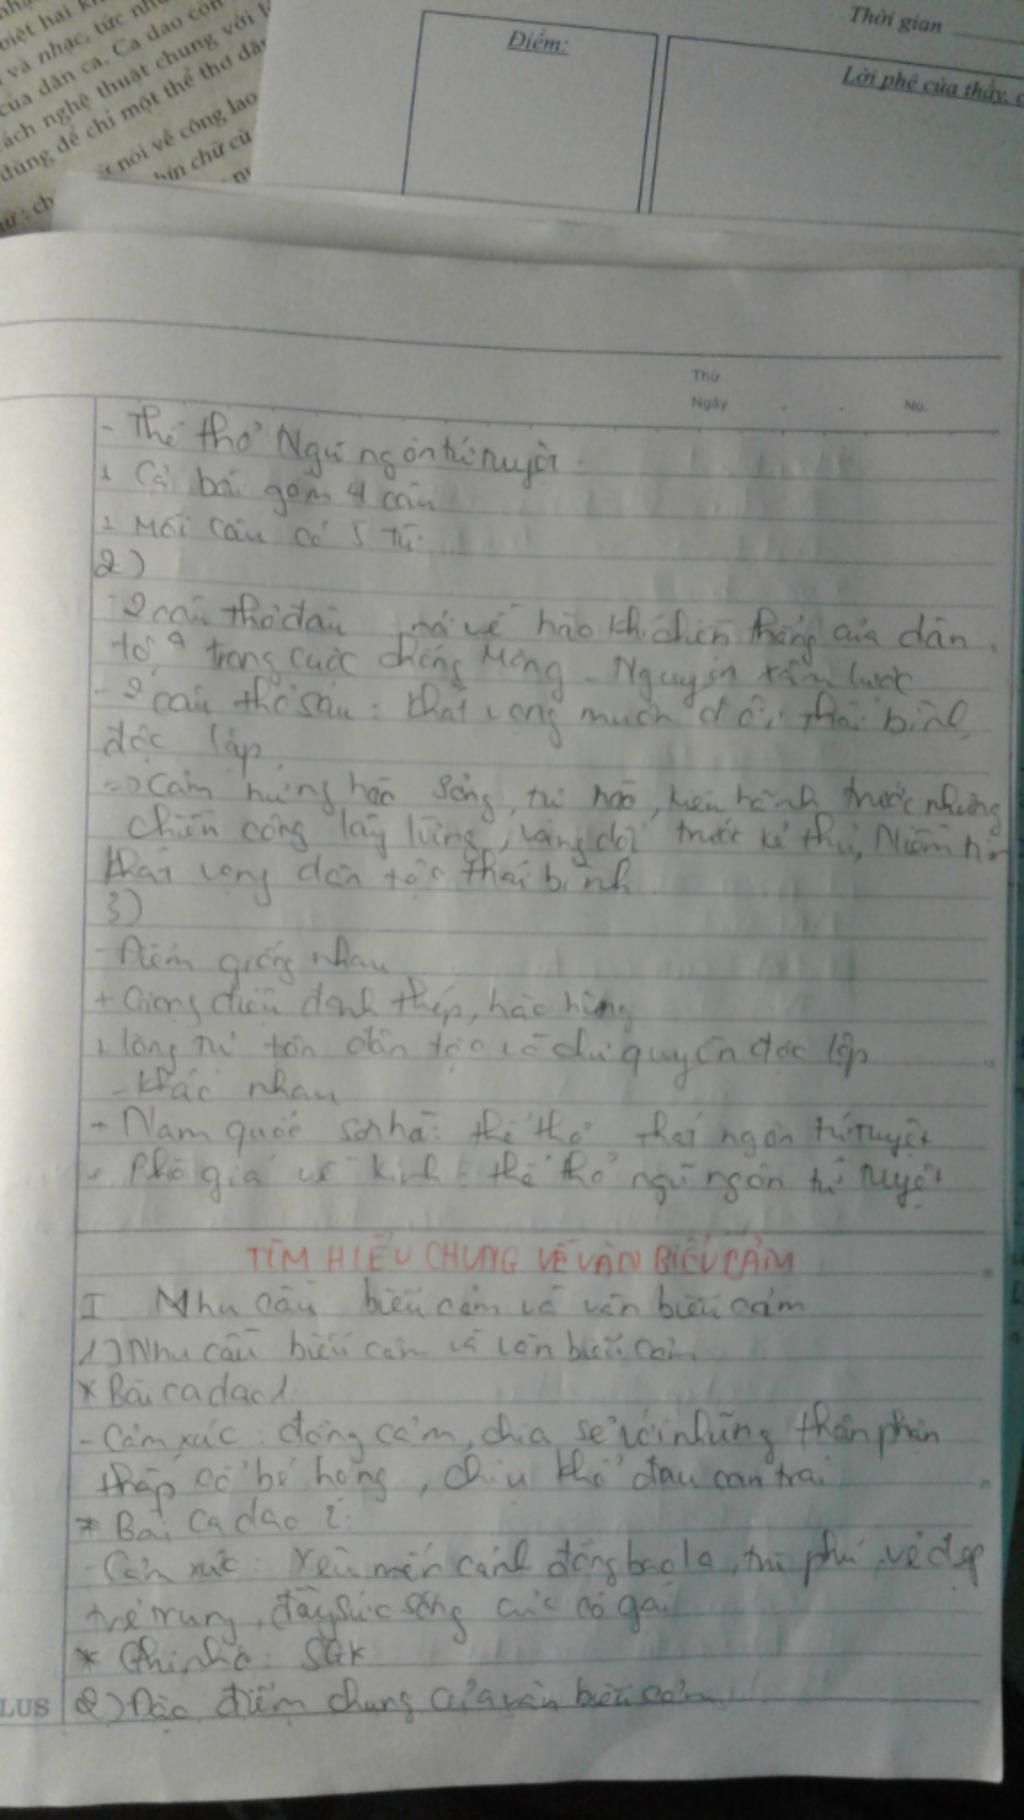 biệt hai
và nhạc, tức
của dân ca. Ca dao còn
ách nghệ thuật chung với
dùng để chỉ một thể thơ dân
nói về công lao
chữ cũ
Thời gian
Điểm:
Lời phê của thầy, c
Thứ
Ngày
No.
- Thể thơ Ngũ ngôn tứ tuyệt
+ Cả bài gồm 4 câu
+ Mỗi câu có 5 từ
2)
- 2 câu thơ đầu nói về hào khí chiến thắng của dân
tộc trong cuộc chống Mông - Nguyên xâm lược
- 2 câu thơ sau: khát vọng muốn thái bình,
độc lập
=> Cảm hứng hào sảng, tự hào, kiêu hãnh trước những
chiến công lẫy lừng, vang dội trước kẻ thù, Niềm
khát vọng dân tộc thái bình
3)
- Điểm giống nhau
+ Giọng điệu đanh thép, hào hùng
+ lòng tự tôn dân tộc về chủ quyền độc lập
- khác nhau
+ Nam quốc sơn hà: thể thơ thất ngôn tứ tuyệt
+ Phò giá về kinh: thể thơ ngũ ngôn tứ tuyệt
TÌM HIỂU CHUNG VỀ VĂN BIỂU CẢM
I Nhu cầu biểu cảm và văn biểu cảm
1) Nhu cầu biểu cảm và văn biểu cảm
* Bài ca dao 1
- Cảm xúc: đồng cảm, chia sẻ với những thân phận
thấp cổ bé họng, chịu khổ đau oan trái
* Bài ca dao 2:
- Cảm xúc: Yêu mến cánh đồng bao la, trù phú, vẻ đẹp
trẻ trung, đầy sức sống của cô gái
* Ghi nhớ: SGK
2) Đặc điểm chung của văn biểu cảm
LUS